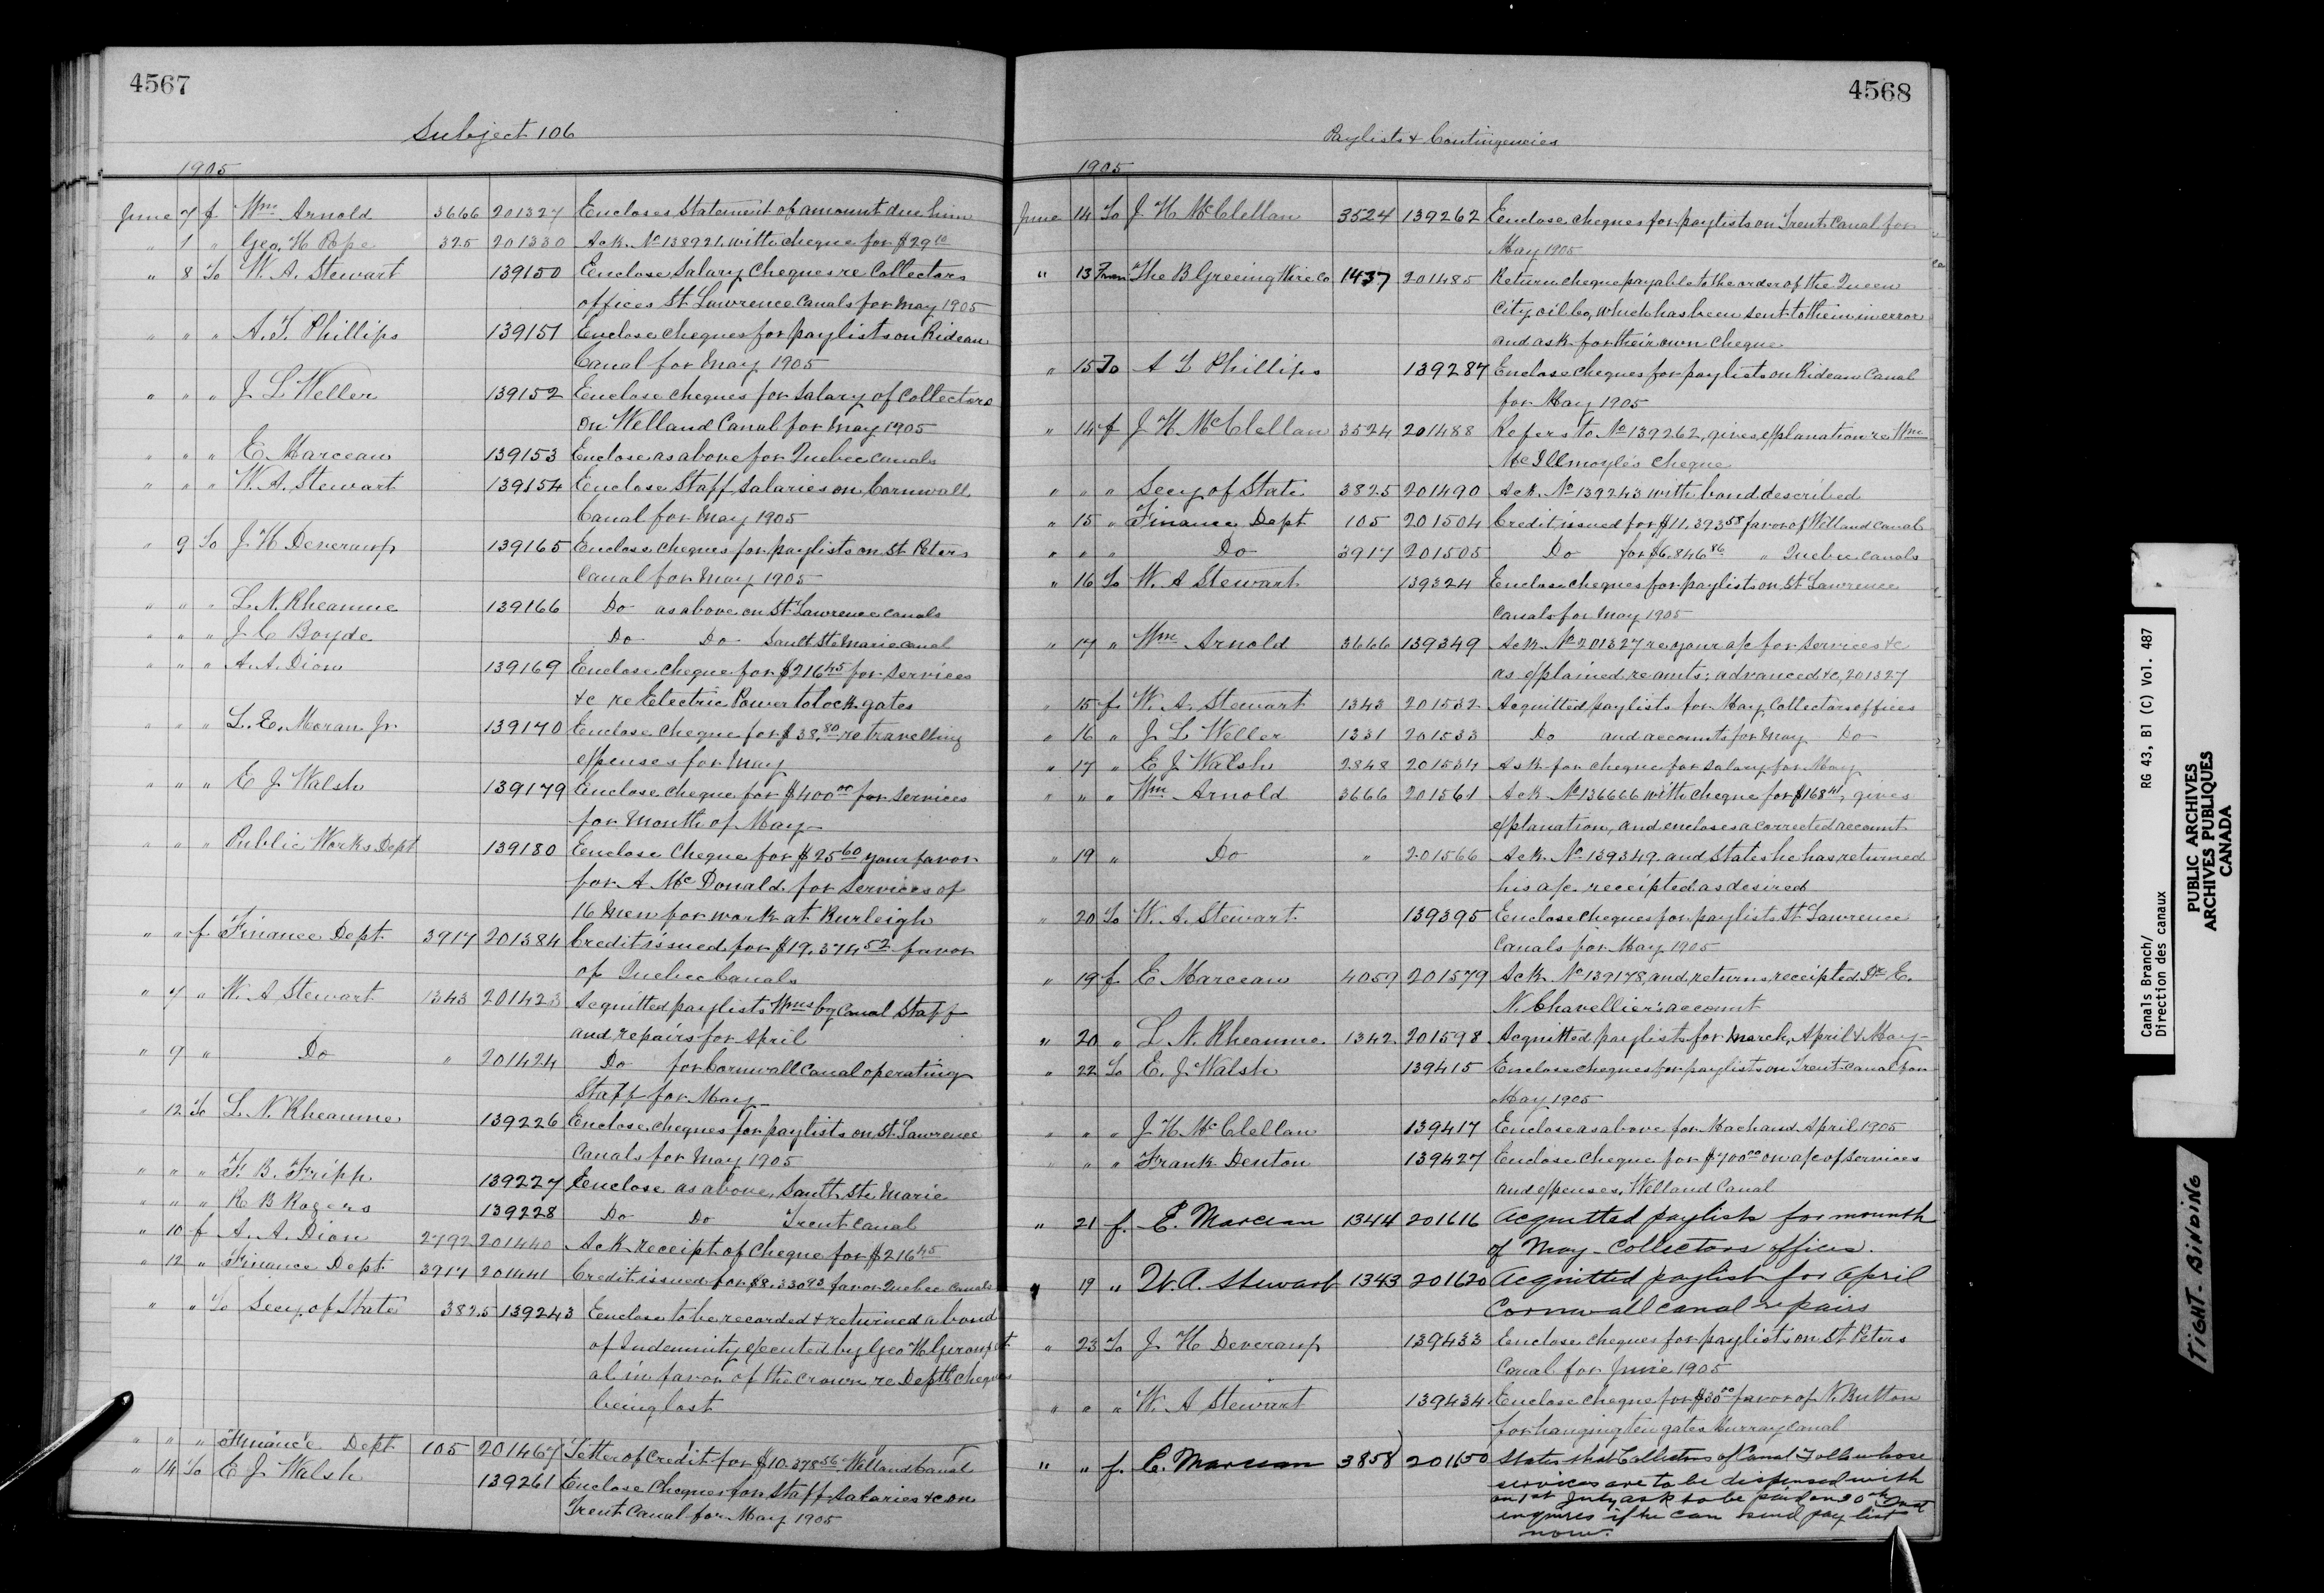 4567
Subject 106
1905
June 7 f Wm Arnold 3666 201327 Encloses Statement of amount due him
" 1 " Geo. H Pope 325 201330 Ack. No 138921 with cheque for $29 10
" 8 To W. A. Stewart 139150 Enclose Salary Cheques re Collectors
offices St. Lawrence Canals for May 1905
" " " A. T. Phillips 139151 Enclose cheques for paylists on Rideau
Canal for May 1905
" " " J L Weller 139152 Enclose cheques for Salary of Collectors
on Welland Canal for May 1905
" " " E. Marceau 139153 Enclose as above for Quebec Canals
" " " W. A. Stewart 139154 Enclose Staff Salaries on Cornwall
Canal for May 1905
" 9 To J H Devereaux 139165 Enclose cheques for paylists on St. Peters
Canal for May 1905
" " " L. N. Rheaume 139166 Do as above on St. Lawrence canals
" " " J C Boyde Do Do Sault Ste Marie canal
" " " A. A. Dion 139169 Enclose cheque for $216 45 for services
&c re Electric Power to lock gates
" " " L. E. Moran Jr. 139170 Enclose cheque for $38.80 re travelling
expenses for May
" " " E J Walsh 139179 Enclose cheque for $400 00 for services
for Month of May
" " " Public Works Dept 139180 Enclose Cheque for $25 60 your favor
for A McDonald for services of
16 Men for work at Burleigh
" " f. Finance Dept. 3917 201384 Credit issued for $19.374 52 favor
of Quebec Canals
" 7 " W. A Stewart 1343 201423 Acquitted paylists Wmsbg Canal Staff
and repairs for April
" 9 " Do " 201424 Do for Cornwall Canal operating
Staff for May
" 12 To L. N. Rheaume 139226 Enclose cheques for paylists on St. Lawrence
Canals for May 1905
" " " F. B. Fripp 139227 Enclose as above, Sault Ste Marie
" " " R B Rogers 139228 Do Do Trent Canal
" 10 f A. A. Dion 2792 201440 Ack receipt of cheque for $216 45
" 12 " Finance Dept. 3917 201441 Credit issued for $8.330 93 favor Quebec Canals
" " To Secy. of State 3825 139243 Enclose to be recorded & returned a bond
of Indemnity executed by Geo H et
al in favor of the Crown re Deptl cheques
being lost
" " " Finance Dept 105 201467 Letter of Credit for $10.378 56 Welland Canal
" 14 To E J Walsh 139261 Enclose Cheques for Staff Salaries &c on
Trent Canal for May 1905
4568
Paylists & Contingencies
1905
June 14 To J H McClellan 3524 139262 Enclose cheques for paylists on Trent Canal for
May 1905
" 13 From The B Greening Wire Co 1437 201485 Return cheque payable to the order of the Queen
City oil Co, which has been sent to them in error
and ask for their own cheque
" 15 To A T Phillips 139287 Enclose cheques for paylists on Rideau Canal
for May 1905
" 14 f J H McClellan 3524 201488 Refers to No 139262, gives explanation re Wm
McIllmoyle's cheque
" " " Secy of State 3825 201490 Ack. No 139243 with bond described
" 15 " Finance Dept 105 201504 Credit issued for $11.393 58 favor of Welland Canal
" " " Do 3917 201505 Do for $6.846 86 " Quebec canals
" 16 To W. A Stewart 139324 Enclose cheques for paylists on St Lawrence
Canals for May 1905
" 17 " Wm Arnold 3666 139349 Ack. No 201327 re your a/c for services &c
as explained re amts. advanced &c, 201327
" 15 f. W. A. Stewart 1343 201532 Acquitted paylists for May Collectors offices
" 16 " J L Weller 1331 201533 Do and accounts for May Do
" 17 " E J Walsh 2848 201534 Ask for cheque for Salary for May
" " " Wm Arnold 3666 201561 Ack No 136666 with cheque for $168 41, gives
explanation, and encloses a corrected account
" 19 " Do " 201566 Ack. No 139349 and States he has returned
his a/c receipted as desired
" 20 To W. A. Stewart 139395 Enclose cheques for paylists St. Lawrence
Canals for May 1905
" 19 f E Marceau 4059 201579 Ack No 139178, and returns receipted Dr E.
N. Chavellier's account
" 20 " L N. Rheaume 1342 201598 Acquitted paylists for March, April & May
" 22 To E. J Walsh 139415 Enclose cheques for paylists on Trent Canal for
May 1905
" " " J H McClellan 139417 Enclose as above for Mach and April 1905
" " " Frank Denton 139427 Enclose cheque for $700 00 on a/c of services
and expenses, Welland Canal
" 21 f. E. Marceau 1344 201616 Acquitted paylists for mounth
of May - Collectors offices.
" 19 " W. A. Stewart 1343 201620 Acquitted paylist for April
Cornwall canal repairs
" 23 To J H Devereaux 139433 Enclose cheques for paylists on St Peters
Canal for June 1905
" " " W. A Stewart 139434 Enclose cheque for $30 00 favor of N. Button
for hanging ten gates Murray Canal
" " f. E. Marceau 3858 201650 States that Collectors of Canal Tolls whose
services are to be dispensed with
on 1st July ask to be paid on 30th Inst
inquires if he can send pay list
now.
Canals Branch/ RG 43, B1 (C) Vol. 487
Direction des canaux
PUBLIC ARCHIVES
ARCHIVES PUBLIQUES
CANADA
TIGHT BINDING